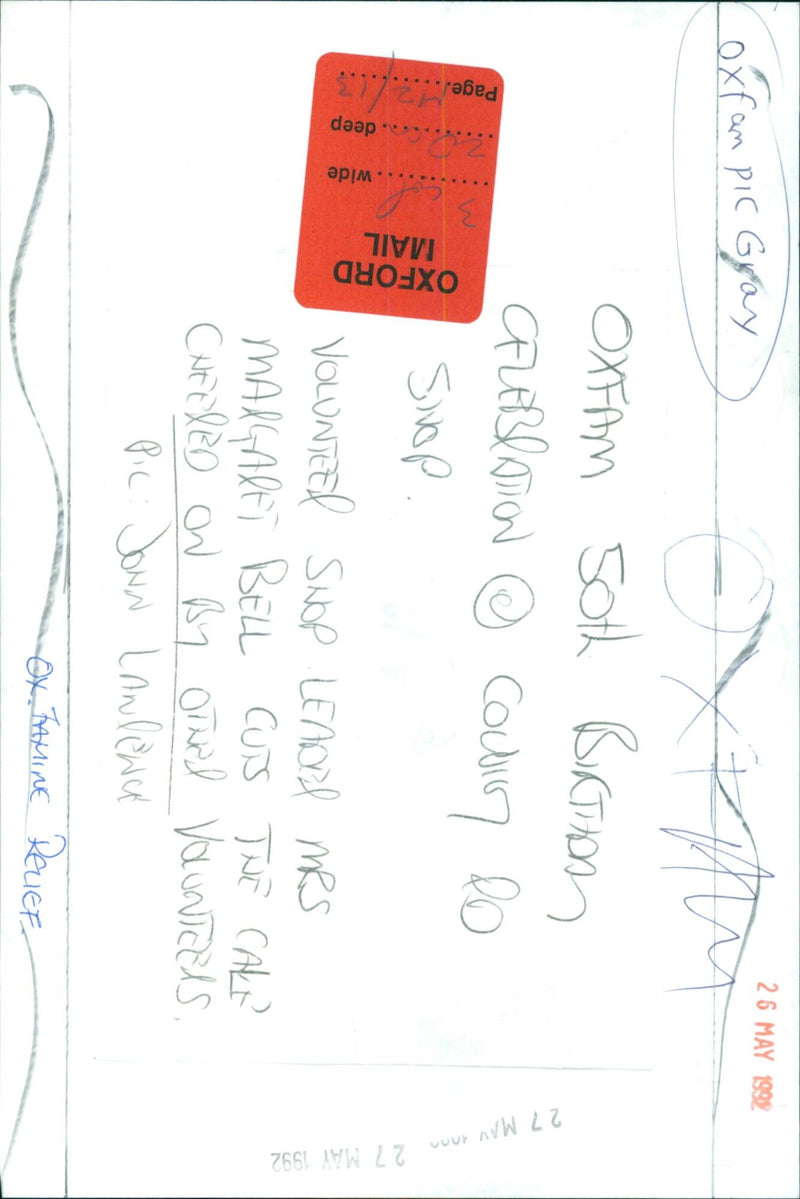 Oxfam PIC Gray
OXFAM
26 MAY 1992
OXFAM 50th BIRTHDAY
CELEBRATION @ COWLEY RD
SHOP.
VOLUNTEER SHOP LEADER MRS
MARGARET BELL CUTS THE CAKE
CHEERED ON BY OTHER VOLUNTEERS.
PIC: JOHN LAWRENCE
OXFORD
MAIL
3 col wide
20 cm deep
Page 12/13
OX. FAMINE RELIEF.
27 MAY 1992
27 MAY 1992